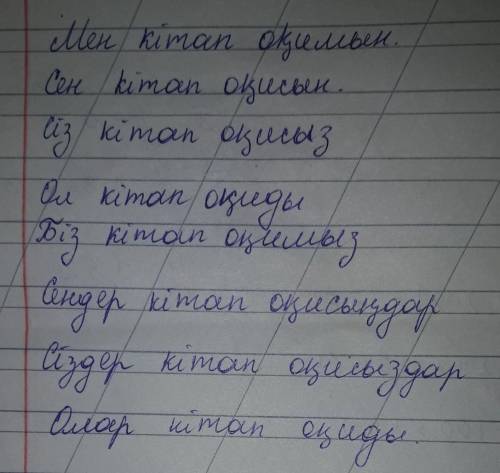 Мен кітап оқимын.
Сен кітап оқисын.
Сіз кітап оқисыз
Ол кітап оқиды
Біз кітап оқимыз
Сендер кітап оқисыңдар
Сіздер кітап оқисыздар
Олар кітап оқиды.